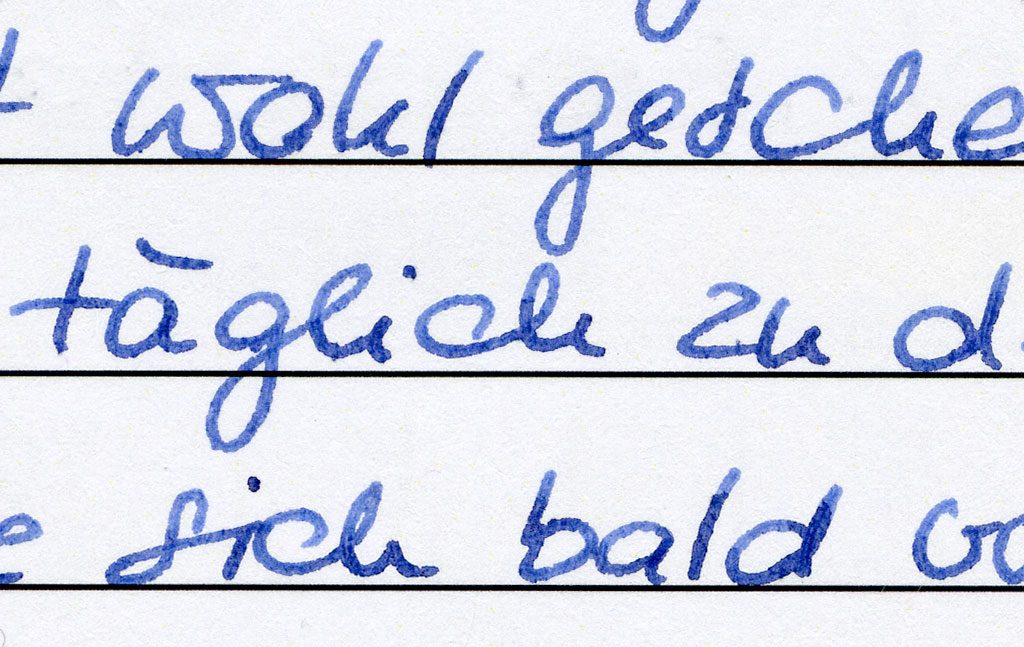 wohl gesche
täglich zu d
e sich bald vo